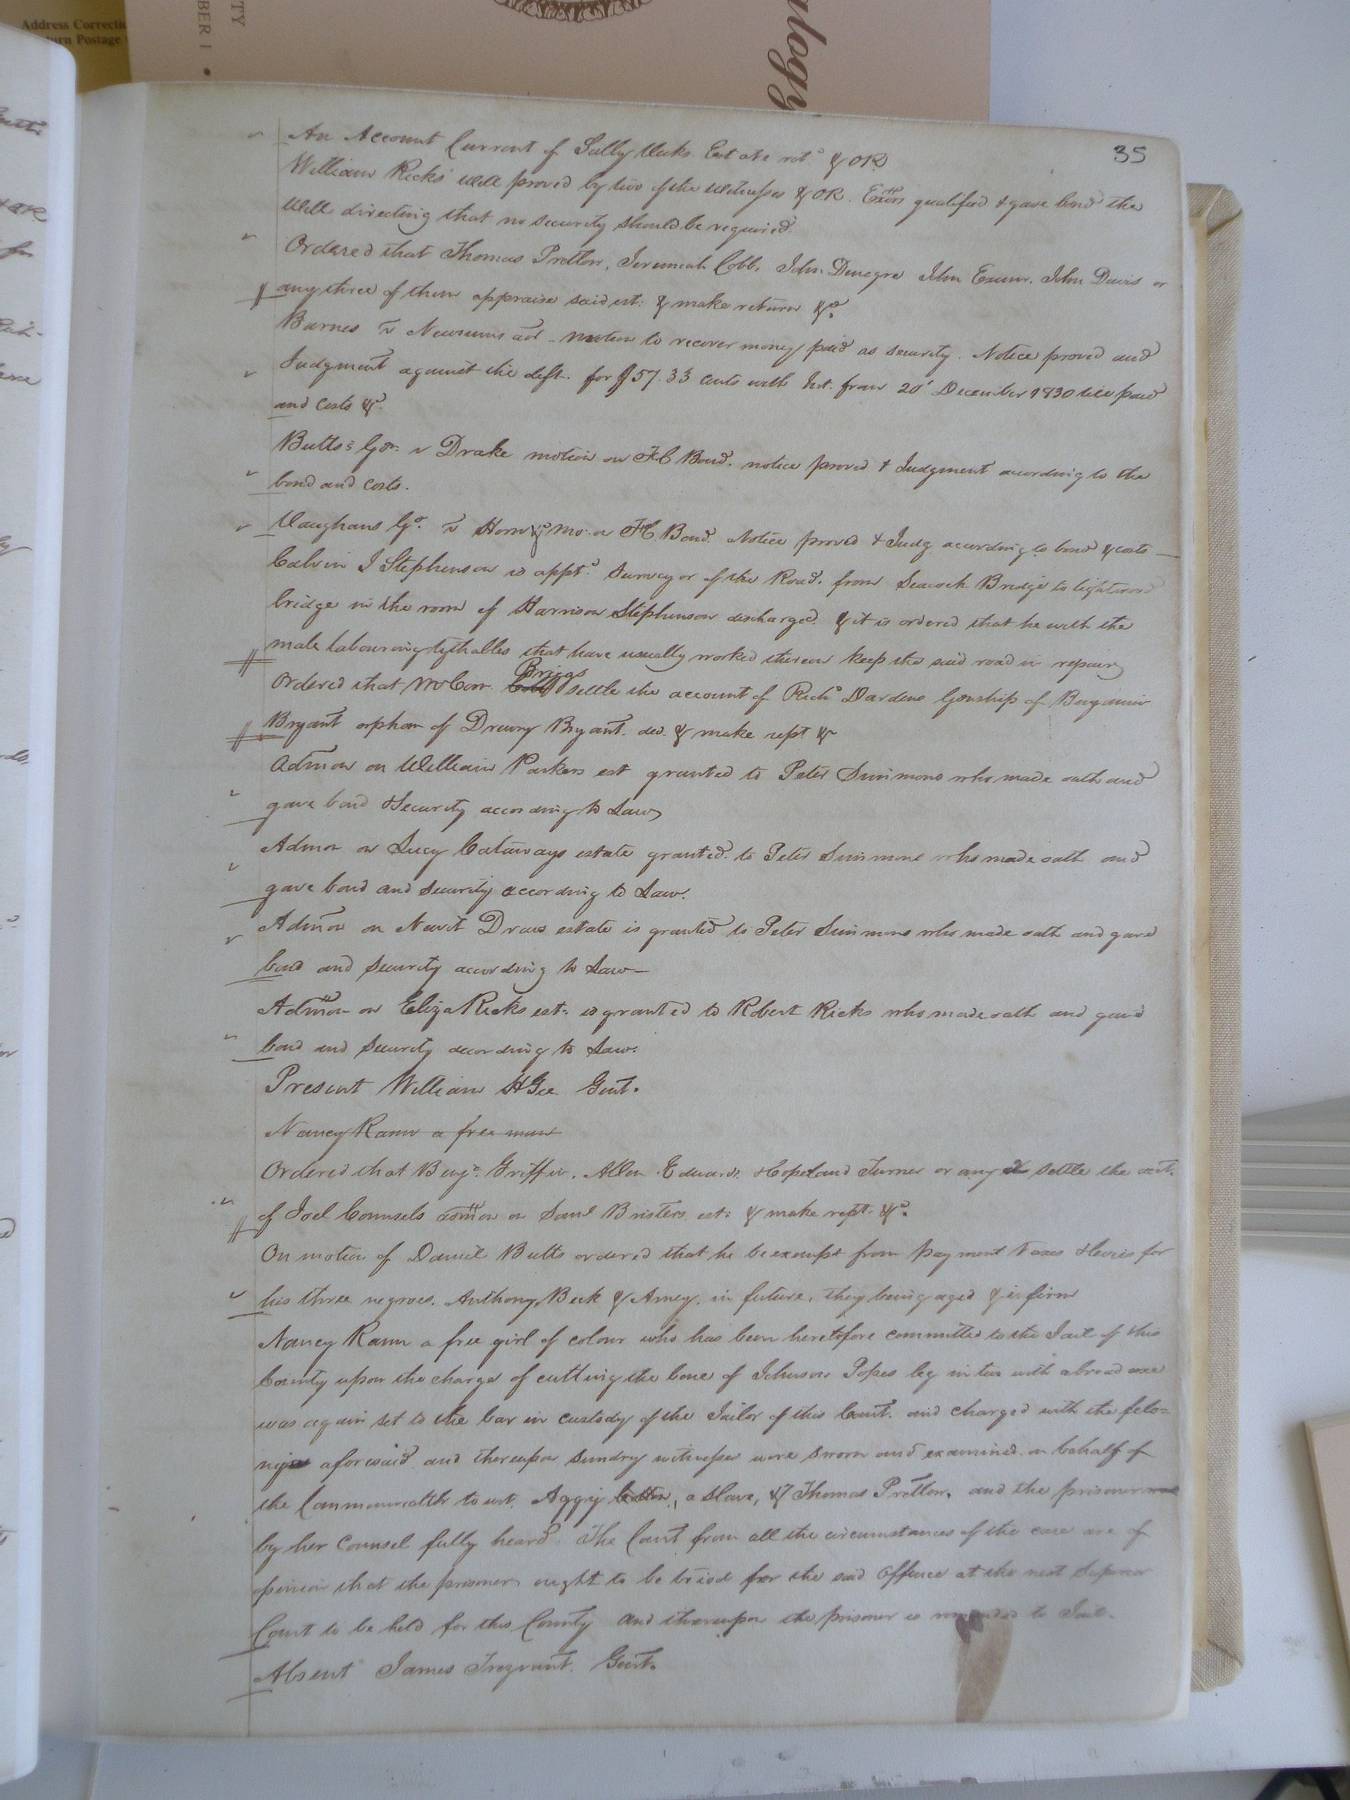 Address Correctio
turn Postage
TY
BER 1 •
ology
35
An Account Current of Sally Ricks Estate retd & OR
William Ricks' will proved by two of the witnesses & OR. Exors qualified & gave bond the
Will directing that no security should be required.
Ordered that Thomas Pretlow, Jeremiah Cobb, John Denegre John Exum, John Davis or
any three of them appraise said est: & make return &c.
Barnes vs Newsums ad motion to recover money paid as security. Notice proved and
Judgment against the deft. for $57.33 cents with Int. from 20' December 1830 till paid
and costs &c.
Butts's Gdn. vs Drake motion on FC Bond. notice proved & Judgment according to the
bond and costs.
Vaughans Gd. vs Horn &c mo. on FC Bond. Notice proved & Judg according to bond & costs —
Calvin J Stephenson is appt.d surveyor of the Road, from Seacock Bridge to lightwood
bridge in the room of Harrison Stephenson discharged. & it is ordered that he with the
male labouring tythables that have usually worked thereon keep the said road in repair
Briggs
Ordered that Mr Com. settle the account of Richd Dardens Gdnship of Benjamin
Bryant orphan of Drewry Bryant. decd. & make rept &c
Admon on William Parkers est granted to Peter Simmons who made oath and
gave bond & Security according to Law
Admon on Lucy Cataways estate granted to Peter Simmons who made oath and
gave bond and security according to Law.
Admon on Newit Drews estate is granted to Peter Simmons who made oath and gave
bond and security according to Law—
Admon on Eliza Ricks est: is granted to Robert Ricks who made oath and gave
bond and security according to Law.
Present William H Gee Gent.
Nancy Rann a free man
Ordered that Benj.a Griffin, Allen Edwards & Copeland Turner or any 2 settle the acct.
of Joel Counsels admon on Saml Bristers est: & make rept. &c.
On motion of Daniel Butts ordered that he be exempt from payment Taxes & levies for
his three negroes, Anthony, Beck & Amey, in future, they being aged & infirm
Nancy Rann a free girl of colour who has been heretofore committed to the Jail of this
County upon the charge of cutting the bone of Johnson Popes leg in two with a broad axe
was again set to the bar in custody of the Jailor of this Court. and charged with the felo=
ny aforesaid and thereupon sundry witnesses were sworn and examined on behalf of
the Commonwealth to wit, Aggy, a slave, & Thomas Pretlow, and the prisoner
by her Counsel fully heard. The Court from all the circumstances of the case are of
opinion that the prisoner ought to be tried for the said offence at the next Superior
Court to be held for this County and thereupon the prisoner is remanded to Jail.
Absent James Trezvant. Gent.